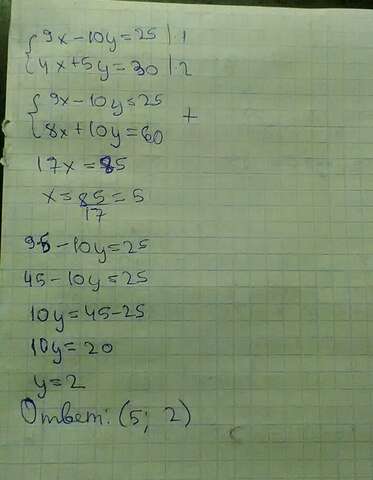 { 9x - 10y = 25 | · 1
{ 4x + 5y = 30 | · 2
{ 9x - 10y = 25
{ 8x + 10y = 60 +
17x = 85
x = 85/17 = 5
9·5 - 10y = 25
45 - 10y = 25
10y = 45 - 25
10y = 20
y = 2
Ответ: (5; 2)